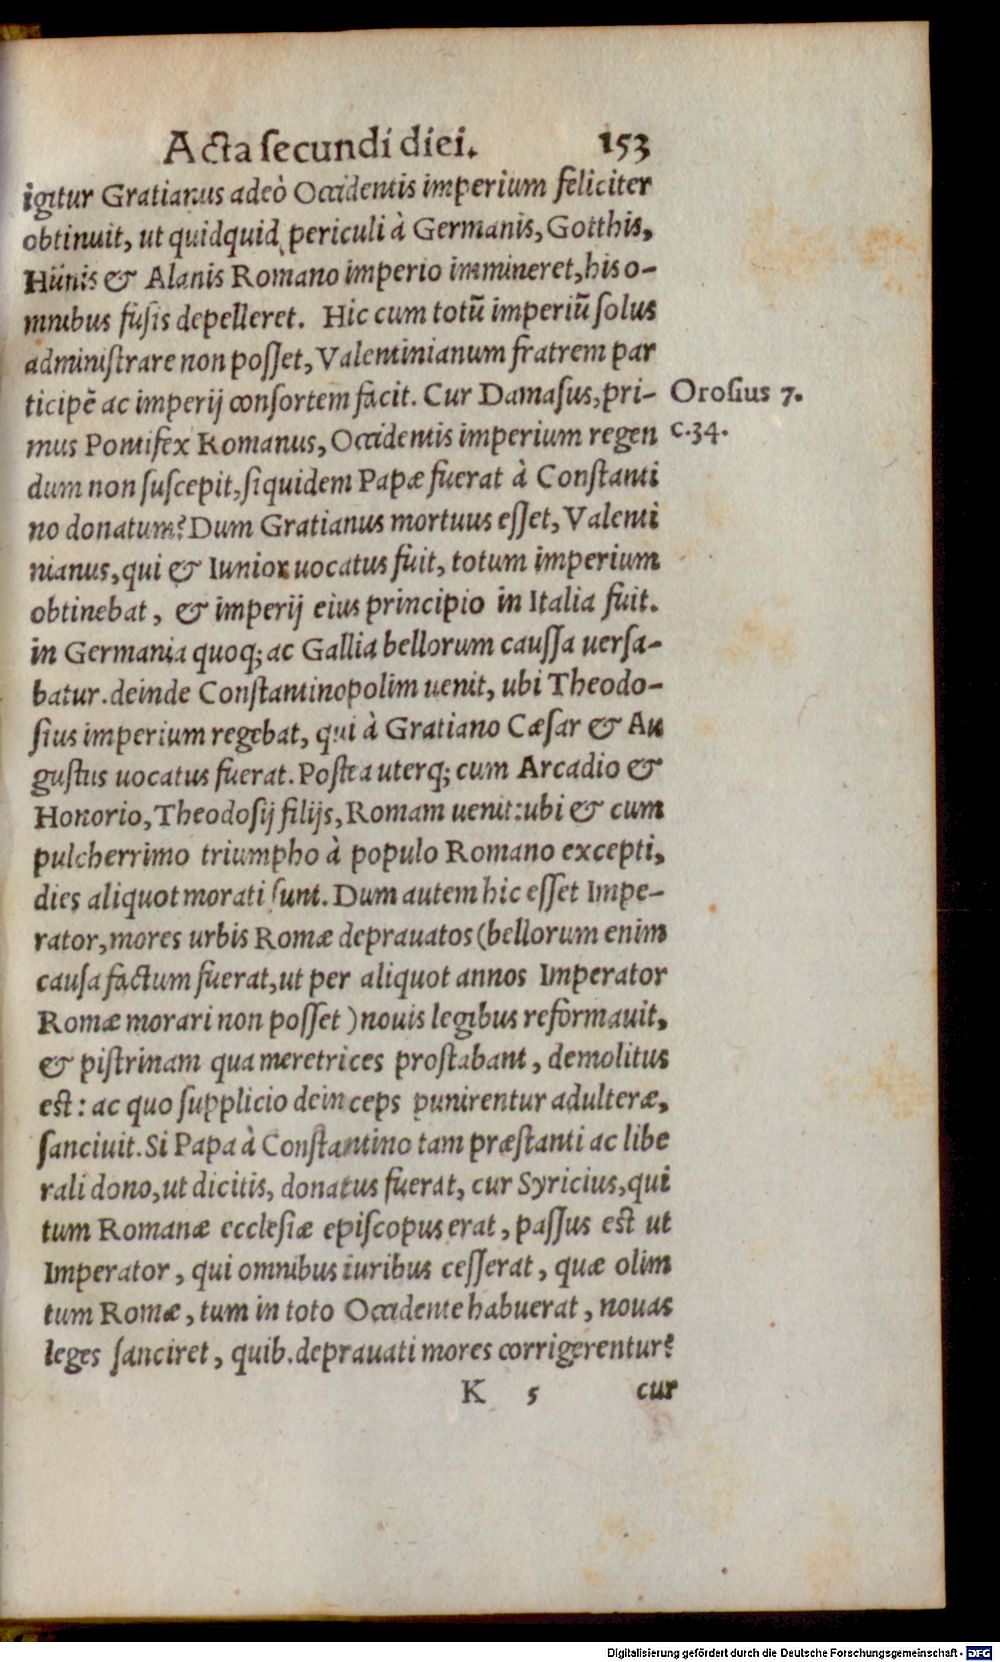 Acta secundi diei. 153
igitur Gratianus adeò Occidentis imperium feliciter
obtinuit, ut quidquid periculi à Germanis, Gotthis,
Hünis & Alanis Romano imperio immineret, his o-
mnibus fusis depelleret. Hic cum totū imperiū solus
administrare non posset, Valentinianum fratrem par
ticipē ac imperij consortem facit. Cur Damasus, pri-
Orosius 7.
mus Pontifex Romanus, Occidentis imperium regen
c.34.
dum non suscepit, siquidem Papæ fuerat à Constanti
no donatum? Dum Gratianus mortuus esset, Valenti
nianus, qui & Iunior uocatus fuit, totum imperium
obtinebat, & imperij eius principio in Italia fuit.
in Germania quoq; ac Gallia bellorum caussa uersa-
batur. deinde Constantinopolim uenit, ubi Theodo-
sius imperium regebat, qui à Gratiano Cæsar & Au
gustus uocatus fuerat. Postea uterq; cum Arcadio &
Honorio, Theodosij filijs, Romam uenit: ubi & cum
pulcherrimo triumpho à populo Romano excepti,
dies aliquot morati sunt. Dum autem hic esset Impe-
rator, mores urbis Romæ deprauatos (bellorum enim
causa factum fuerat, ut per aliquot annos Imperator
Romæ morari non posset) nouis legibus reformauit,
& pistrinam qua meretrices prostabant, demolitus
est: ac quo supplicio deinceps punirentur adulteræ,
sanciuit. Si Papa à Constantino tam præstanti ac libe
rali dono, ut dicitis, donatus fuerat, cur Syricius, qui
tum Romanæ ecclesiæ episcopus erat, passus est ut
Imperator, qui omnibus iuribus cesserat, quæ olim
tum Romæ, tum in toto Occidente habuerat, nouas
leges sanciret, quib. deprauati mores corrigerentur?
K 5 cur
Digitalisierung gefördert durch die Deutsche Forschungsgemeinschaft - DFG